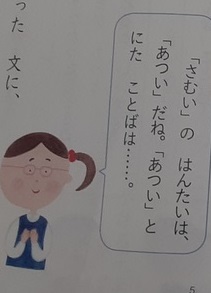 「さむい」の はんたいは、
「あつい」だね。「あつい」と
にた ことばは……。
った 文に、
5